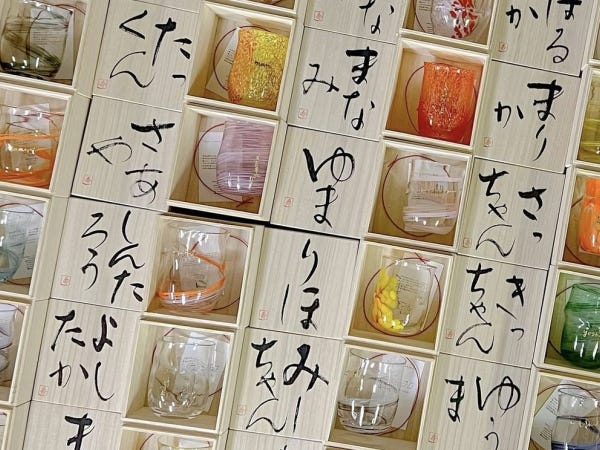 はる
か
な
たっ
くん
まな
み
まり
か
さあ
や
ゆま
さっ
ちゃん
しんた
ろう
りほ
きっ
ちゃん
よし
たか
みー
ちゃん
ゆう
ま
ま